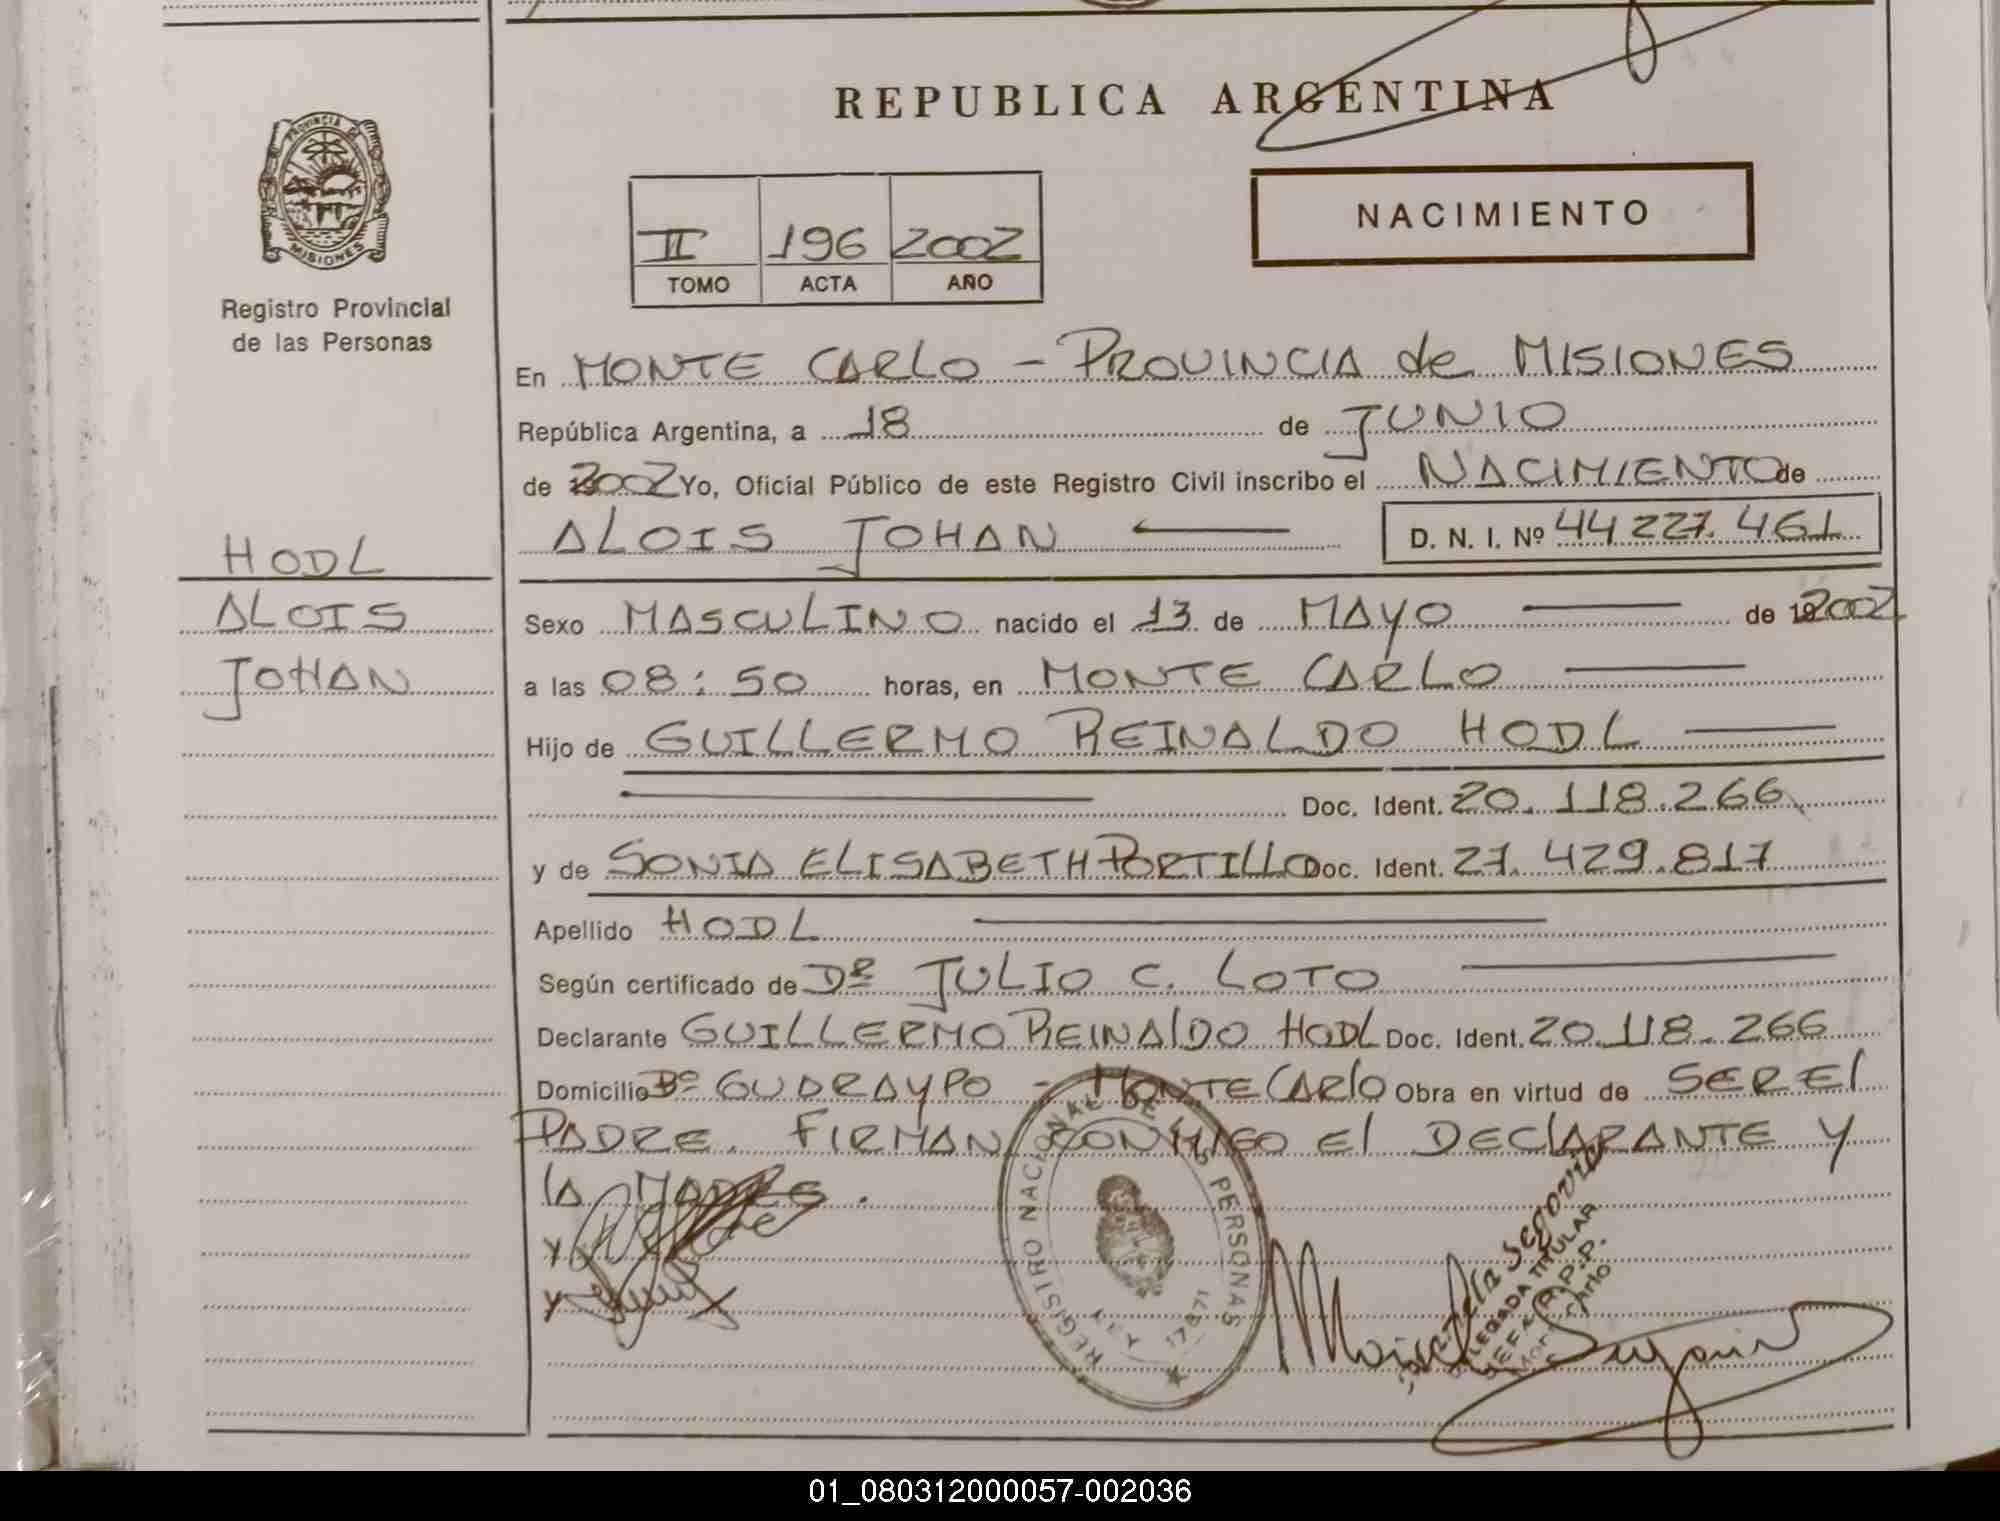 REPUBLICA ARGENTINA
PROVINCIA DE MISIONES
Registro Provincial
de las Personas
NACIMIENTO
II 196 2002
TOMO ACTA AÑO
En MONTE CARLO - PROVINCIA de MISIONES
República Argentina, a 18 de JUNIO
de 2002 Yo, Oficial Público de este Registro Civil inscribo el NACIMIENTO de
ALOIS JOHAN D. N. I. Nº 44 227. 461
HODL
ALOIS
JOHAN
Sexo MASCULINO nacido el 13 de MAYO de 2002
a las 08:50 horas, en MONTE CARLO
Hijo de GUILLERMO REINALDO HODL
Doc. Ident. 20.118.266
y de SONIA ELISABETH PORTILLO Doc. Ident. 27.429.817
Apellido HODL
Según certificado de Dr JULIO C. LOTO
Declarante GUILLERMO REINAlDO HODL Doc. Ident. 20.118.266
Domicilio Bº GUARAYPO - MONTE CARlO Obra en virtud de SER El
PADRE. FIRMAN CONMIGO El DEClARANTE Y
lA MADRE.
REGISTRO NACIONAL DE LAS PERSONAS
LEY 17671
Segovia
DELEGADA TITULAR
01_080312000057-002036